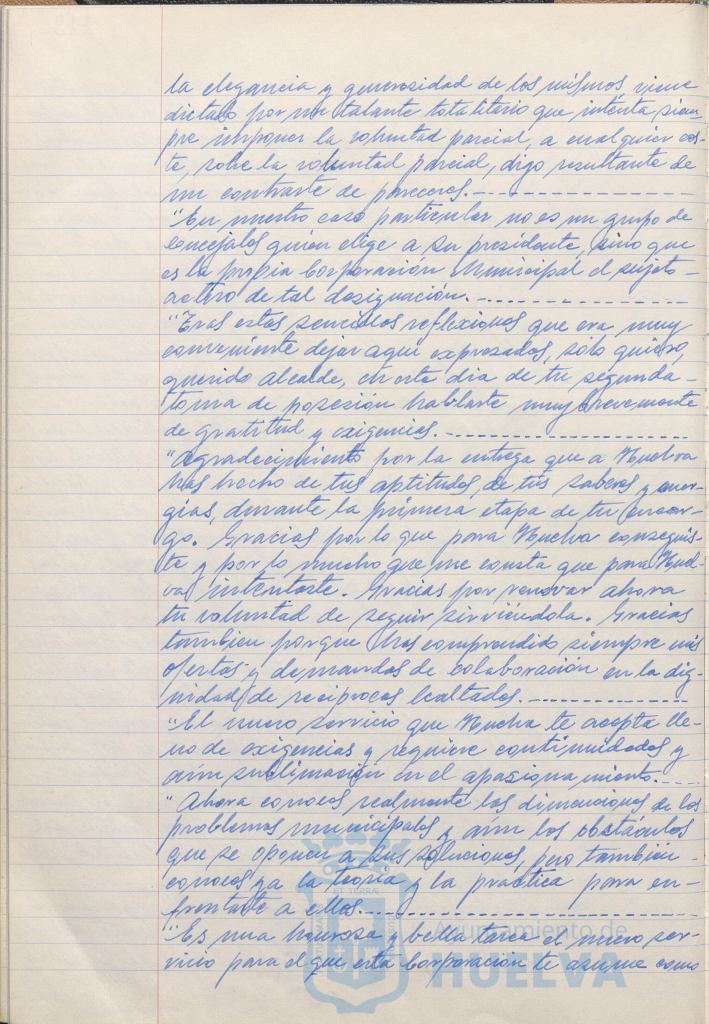 la elegancia y generosidad de los mismos, viene
dictado por un talante totalitario que intenta siem-
pre imponer la voluntad parcial, a cualquier cos-
te, sobre la voluntad parcial, digo resultante de
un contraste de pareceres.-
"En nuestro caso particular no es un grupo de
concejales quien elige a su presidente, sino que
es la propia Corporación Municipal el sujeto-
activo de tal designación.-
"Tras estas sencillas reflexiones que era muy
conveniente dejar aquí expresadas, sólo quiero,
querido alcalde, en este día de tu segunda-
toma de posesión hablarte muy brevemente
de gratitud y exigencias.-
"Agradecimiento por la entrega que a Huelva
has hecho de tus aptitudes, de tus saberes y ener-
gías, durante la primera etapa de tu encar-
go. Gracias por lo que para Huelva conseguis-
te y por lo mucho que me consta que para Huel-
va intentaste. Gracias por renovar ahora
tu voluntad de seguir sirviéndola. Gracias
tambien porque has comprendido siempre mis
ofertas y demandas de colaboración en la dig-
nidad de recíprocas lealtades.-
"El nuevo servicio que Huelva te acepta lle-
no de exigencias y requiere continuidades y
aún sublimación en el apasionamiento.-
"Ahora conoces realmente las dimensiones de los
problemas municipales y aún los obstáculos
que se oponen a sus soluciones, pero también-
conoces ya la teoría y la práctica para en-
frentarte a ellos.-
"Es una honrosa y bella tarea el nuevo ser-
vicio para el que esta Corporación te asume como
ET TERRÆ
Ayuntamiento de
HUELVA